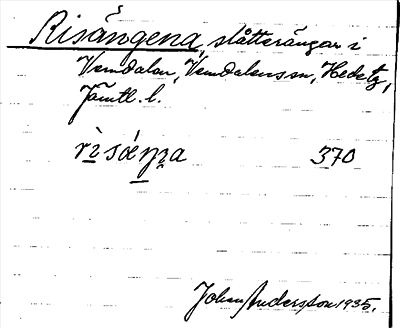 Risångena, slåtterängar i
Vemdalen, Vemdalens sn, Hede tg,
Jämtl. l.
rìsáŋ̣a 370
Johan Andersson 1935.